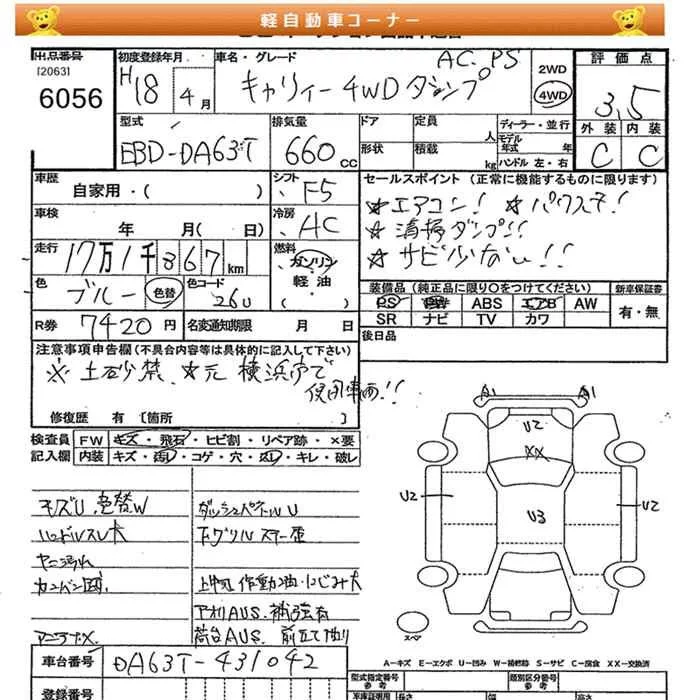 軽自動車コーナー
出品番号
[2063]
6056
初度登録年月
H18
4月
車名・グレード
AC. PS
キャリィー 4WD ダンプ
2WD
4WD
評価点
3.5
外装 内装
C C
型式
EBD-DA63T
排気量
660cc
ドア
定員
人
形状
積載
kg
ディーラー・並行
モデル年式 年
ハンドル 左・右
車歴
自家用・( )
シフト
F5
セールスポイント (正常に機能するものに限ります)
☆エアコン! ☆パワステ!
☆清掃ダンプ!!
☆サビ少ない!!
車検
年 月( 日)
冷房
AC
走行
17万1千867km
燃料
ガソリン
軽油・
( )
色
ブルー 色替
色コード
26U
装備品 (純正品に限り〇をつけてください)
新車保証書
PS PW ABS エアB AW
有・無
SR ナビ TV カワ
R券 7420円
名変通知期限 月 日
後日品
注意事項申告欄(不具合内容等は具体的に記入して下さい)
※土砂禁 ☆元横浜市で
使用車両!!
修復歴 有 [箇所 ]
検査員 FW キズ・飛石・ヒビ割・リペア跡・×要
記入欄 内装 キズ・汚れ・コゲ・穴・スレ・キレ・破レ
キズU、色替W
ダッシュパネルU
ハンドルスレ大
下グリルステー歪
ヤニ汚れ
カンバン跡
上物 作動油・にじみ大
アオリAUS. 補強有
荷台AUS.
A1 A1
U2
XX
U2
U3
U2
スペア
A-キズ E-エクボ U-凹み W-補修跡 S-サビ C-腐食 XX-交換済
車台番号 DA63T-431042
型式指定番号
参考
類別区分番号
参考
登録番号
車庫証明用
参考
長さ
幅
高さ